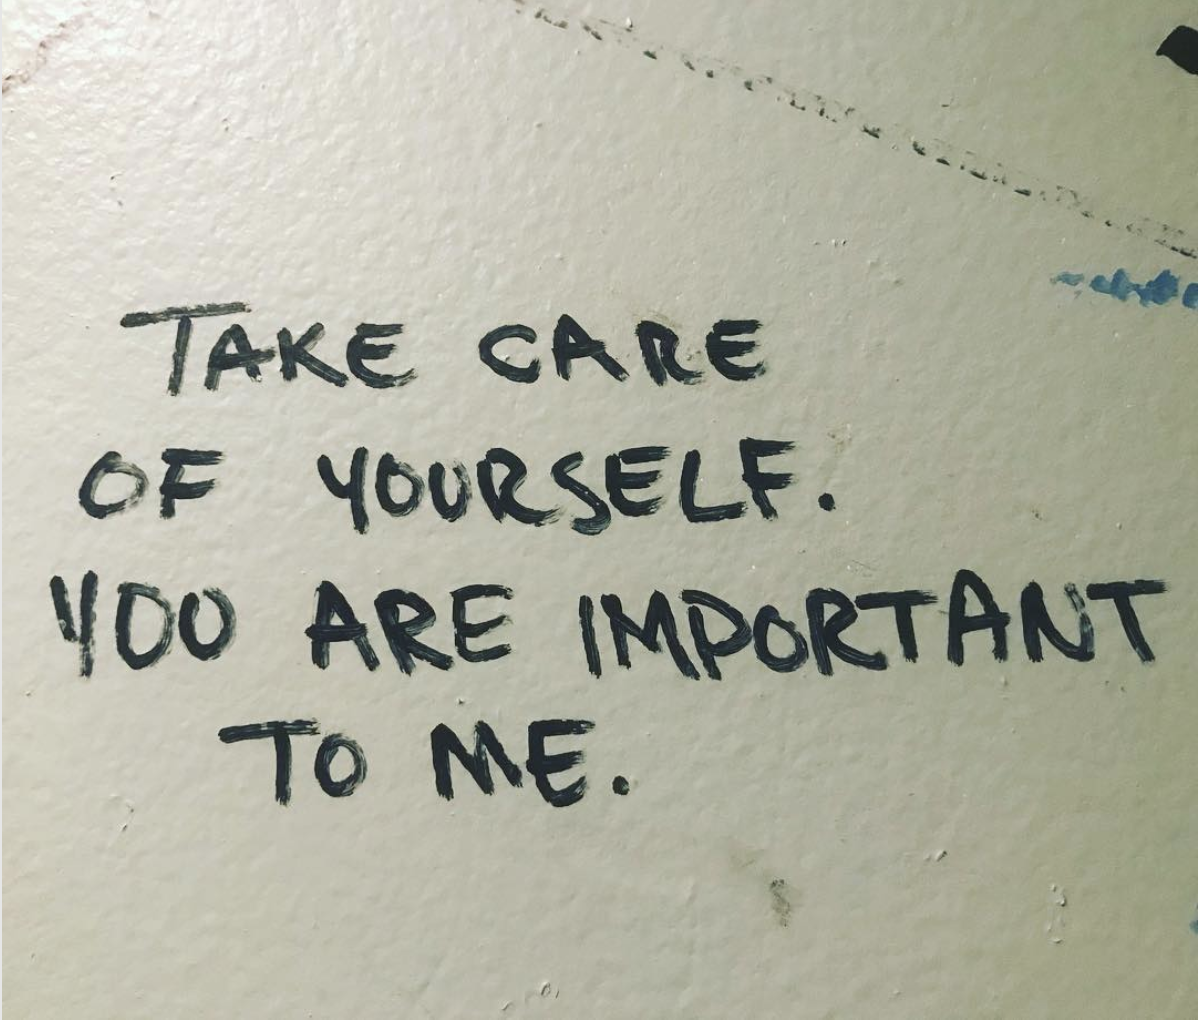 TAKE CARE
OF YOURSELF.
YOU ARE IMPORTANT
TO ME.